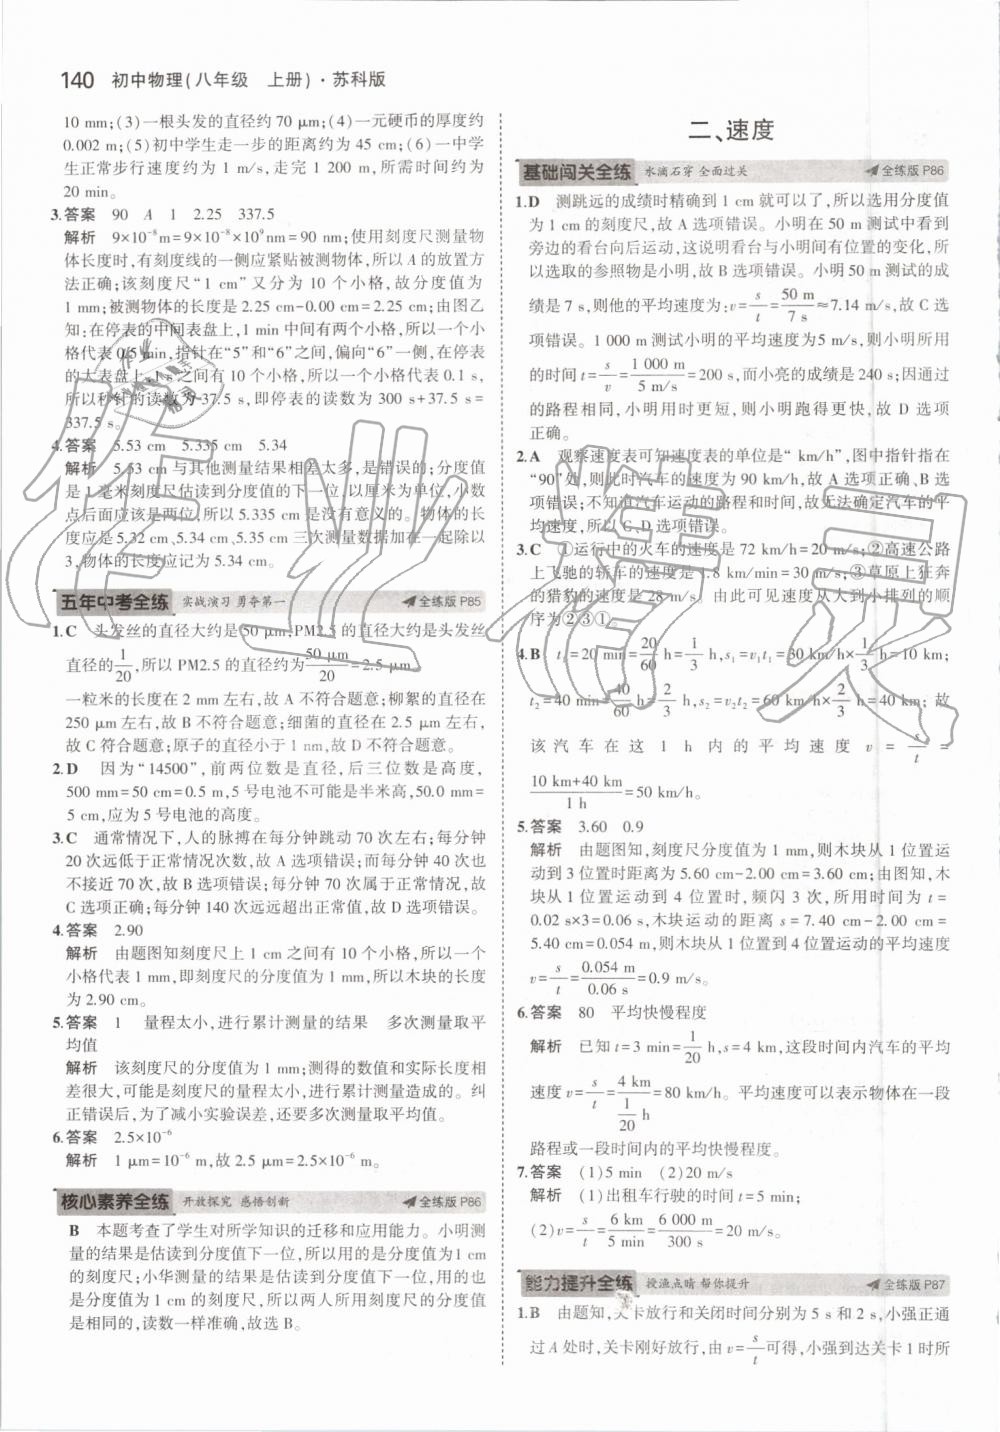 140 初中物理(八年级 上册)·苏科版
10 mm;(3)一根头发的直径约70 μm;(4)一元硬币的厚度约
0.002 m;(5)初中学生走一步的距离约为45 cm;(6)一中学
生正常步行速度约为1 m/s,走完1 200 m,所需时间约为
20 min。
3.答案 90 A 1 2.25 337.5
解析 9×10⁻⁸m=9×10⁻⁸×10⁹nm=90 nm;使用刻度尺测量物
体长度时,有刻度线的一侧应紧贴被测物体,所以A的放置方
法正确;该刻度尺“1 cm”又分为10个小格,故分度值为
1 mm;被测物体的长度是2.25 cm-0.00 cm=2.25 cm;由图乙
知:在停表的中间表盘上,1 min中间有两个小格,所以一个小
格代表0.5 min,指针在“5”和“6”之间,偏向“6”一侧,在停表
的大表盘上,1 s之间有10个小格,所以一个小格代表0.1 s,
所以秒针的读数为37.5 s,即停表的读数为300 s+37.5 s=
337.5 s。
4.答案 5.53 cm 5.335 cm 5.34
解析 5.53 cm与其他测量结果相差太多,是错误的;分度值
是1毫米刻度尺估读到分度值的下一位,以厘米为单位,小数
点后面应该是两位,所以5.335 cm是没有意义的。物体的长
度应是5.32 cm、5.34 cm、5.35 cm三次测量数据加在一起除以
3,物体的长度应记为5.34 cm。
五年中考全练 实战演习 勇夺第一 全练版P85
1.C 头发丝的直径大约是50 μm,PM2.5的直径大约是头发丝
直径的1/20,所以PM2.5的直径约为50 μm/20=2.5 μm。
一粒米的长度在2 mm左右,故A不符合题意;柳絮的直径在
250 μm左右,故B不符合题意;细菌的直径在2.5 μm左右,
故C符合题意;原子的直径小于1 nm,故D不符合题意。
2.D 因为“14500”,前两位数是直径,后三位数是高度,
500 mm=50 cm=0.5 m,5号电池不可能是半米高,50.0 mm=
5 cm,应为5号电池的高度。
3.C 通常情况下,人的脉搏在每分钟跳动70次左右;每分钟
20次远低于正常情况次数,故A选项错误;而每分钟40次也
不接近70次,故B选项错误;每分钟70次属于正常情况,故
C选项正确;每分钟140次远远超出正常值,故D选项错误。
4.答案 2.90
解析 由题图知刻度尺上1 cm之间有10个小格,所以一个
小格代表1 mm,即刻度尺的分度值为1 mm,所以木块的长度
为2.90 cm。
5.答案 1 量程太小,进行累计测量的结果 多次测量取平
均值
解析 该刻度尺的分度值为1 mm;测得的数值和实际长度相
差很大,可能是刻度尺的量程太小,进行累计测量造成的。纠
正错误后,为了减小实验误差,还要多次测量取平均值。
6.答案 2.5×10⁻⁶
解析 1 μm=10⁻⁶ m,故2.5 μm=2.5×10⁻⁶ m。
核心素养全练 开放探究 感悟创新 全练版P86
B 本题考查了学生对所学知识的迁移和应用能力。小明测
量的结果是估读到分度值下一位,所以用的是分度值为1 cm
的刻度尺;小华测量的结果是估读到分度值下一位,用的也
是分度值为1 cm的刻度尺,所以两人所用刻度尺的分度值
是相同的,读数一样准确,故选B。
二、速度
基础闯关全练 水滴石穿 全面过关 全练版P86
1.D 测跳远的成绩时精确到1 cm就可以了,所以选用分度值
为1 cm的刻度尺,故A选项错误。小明在50 m测试中看到
旁边的看台向后运动,这说明看台与小明间有位置的变化,所
以选取的参照物是小明,故B选项错误。小明50 m测试的成
绩是7 s,则他的平均速度为:v=s/t=50 m/7 s≈7.14 m/s,故C选
项错误。1 000 m测试小明的平均速度为5 m/s,则小明所用
的时间t=s/v=1 000 m/5 m/s=200 s,而小亮的成绩是240 s;因通过
的路程相同,小明用时更短,则小明跑得更快,故D选项
正确。
2.A 观察速度表可知速度表的单位是“km/h”,图中指针指在
“90”处,则此时汽车的速度为90 km/h,故A选项正确、B选
项错误;不知道汽车运动的路程和时间,故无法确定汽车的平
均速度,所以C、D选项错误。
3.C ①运行中的火车的速度是72 km/h=20 m/s;②高速公路
上飞驰的轿车的速度是1.8 km/min=30 m/s;③草原上狂奔
的猎豹的速度是28 m/s。由此可见速度从大到小排列的顺
序为②③①。
4.B t₁=20 min=20/60 h=1/3 h,s₁=v₁t₁=30 km/h×1/3 h=10 km;
t₂=40 min=40/60 h=2/3 h,s₂=v₂t₂=60 km/h×2/3 h=40 km;故
该汽车在这1 h内的平均速度v=s/t=
(10 km+40 km)/1 h=50 km/h。
5.答案 3.60 0.9
解析 由题图知,刻度尺分度值为1 mm,则木块从1位置运
动到3位置时距离为5.60 cm-2.00 cm=3.60 cm;由图知,木
块从1位置运动到4位置时,频闪3次,所用时间为t=
0.02 s×3=0.06 s,木块运动的距离s=7.40 cm-2.00 cm=
5.40 cm=0.054 m,则木块从1位置到4位置运动的平均速度
v=s/t=0.054 m/0.06 s=0.9 m/s。
6.答案 80 平均快慢程度
解析 已知t=3 min=1/20 h,s=4 km,这段时间内汽车的平均
速度v=s/t=4 km/(1/20 h)=80 km/h。平均速度可以表示物体在一段
路程或一段时间内的平均快慢程度。
7.答案 (1)5 min (2)20 m/s
解析 (1)出租车行驶的时间t=5 min;
(2)v=s/t=6 km/5 min=6 000 m/300 s=20 m/s。
能力提升全练 授渔点睛 帮你提升 全练版P87
1.B 由题知,关卡放行和关闭时间分别为5 s和2 s,小强正通
过A处时,关卡刚好放行,由v=s/t可得,小强到达关卡1时所
作业精灵